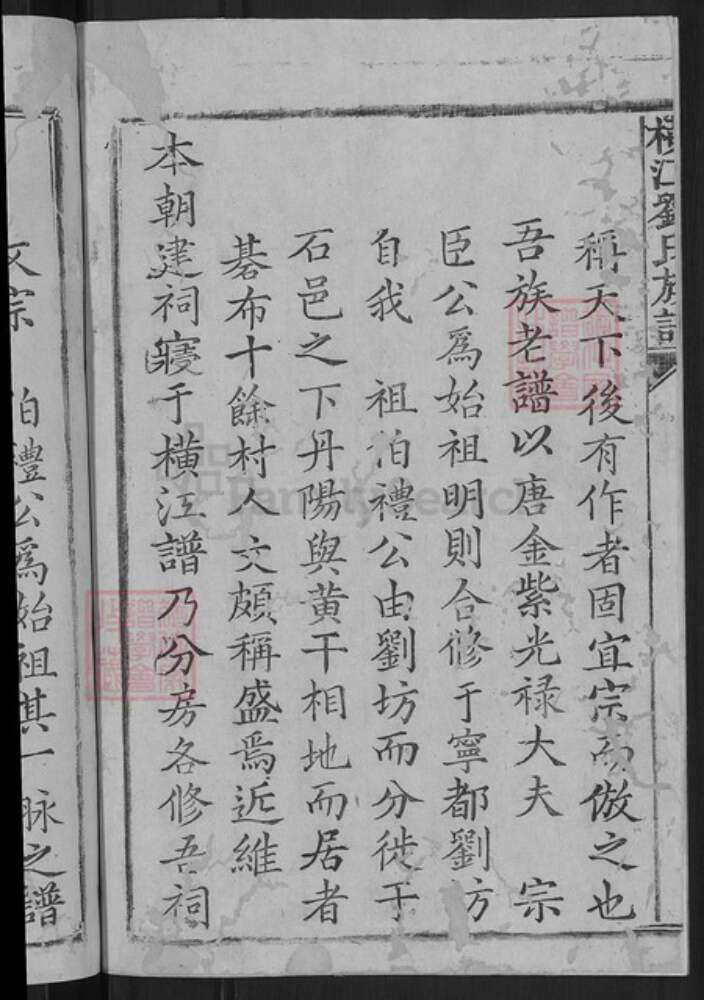 橫江劉氏族譜
稱天下後有作者固宜宗而倣之也
吾族老譜以唐金紫光祿大夫　宗
臣公爲始祖明則合修于寧都劉坊
自我　祖伯禮公由劉坊而分徙于
石邑之下丹陽與黃干相地而居者
碁布十餘村人文頗稱盛焉近維
本朝建祠寢于橫江譜乃分房各修吾祠
文宗　伯禮公爲始祖其一脉之譜
FamilySearch